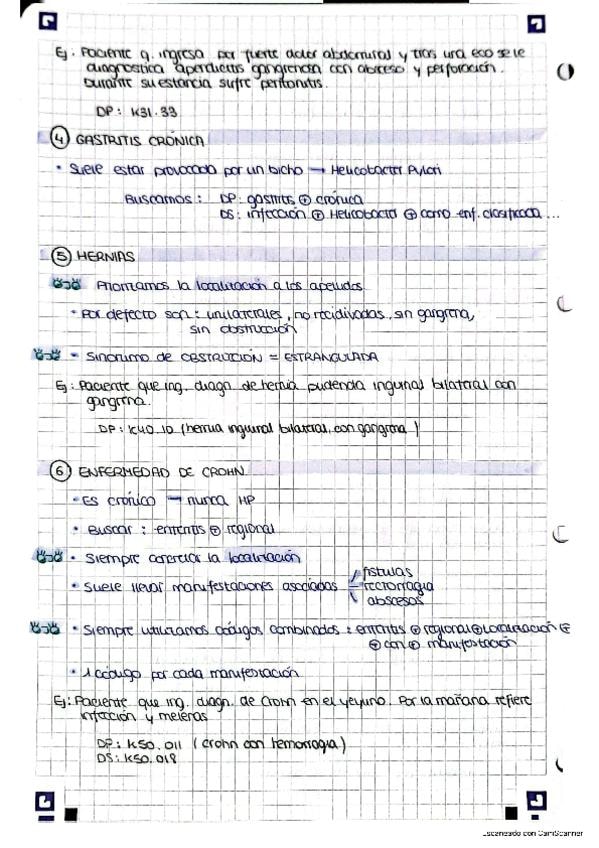 Ej: Paciente q. ingresa por fuerte dolor abdominal y tras una eco se le
diagnostica apendicitis gangrenosa con absceso y perforación.
Durante su estancia sufre peritonitis.
DP: K31.33
④ GASTRITIS CRÓNICA
• Suele estar provocada por un bicho → Helicobacter Pylori
Buscamos: DP: gastritis ⊕ crónica
DS: infección ⊕ Helicobacter ⊕ como enf. clasificada ...
⑤ HERNIAS
Anotamos la localización a los apellidos
• Por defecto son: unilaterales, no recidivadas, sin gangrena,
sin obstrucción
• Sinónimo de OBSTRUCCIÓN = ESTRANGULADA
Ej: Paciente que ing. diagn. de hernia pudenda inguinal bilateral con
gangrena.
DP: K40.10 (hernia inguinal bilateral, con gangrena)
⑥ ENFERMEDAD DE CROHN
• Es crónico → nunca HP
• Buscar: enteritis ⊕ regional
• Siempre la localización
• Suele llevar manifestaciones asociadas fístulas
rectorragia
abscesos
• Siempre utilizamos códigos combinados: enteritis ⊕ regional ⊕ localización ⊕
⊕ con ⊕ manifestación
• 1 código por cada manifestación
Ej: Paciente que ing. diagn. de Crohn en el yeyuno. Por la mañana refiere
infección y melenas
DP: K50.011 (Crohn con hemorragia)
DS: K50.018
Escaneado con CamScanner